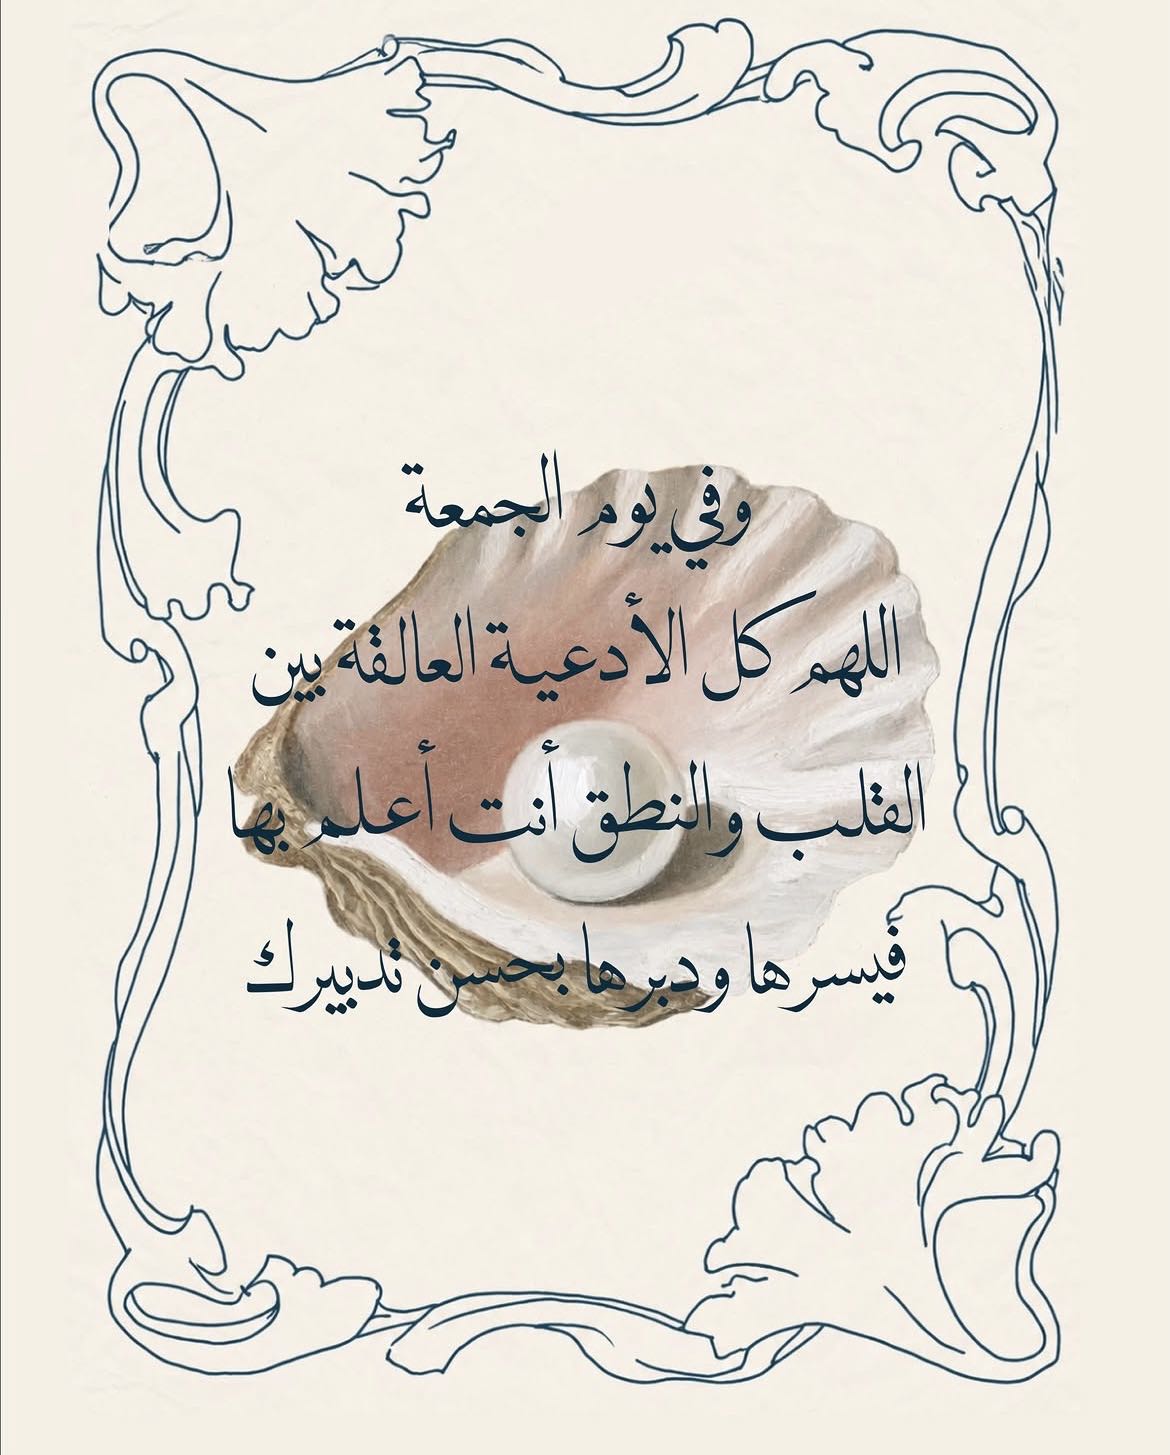 وفي يوم الجمعة
اللهم كل الأدعية العالقة بين
القلب والنطق أنت أعلم بها
فيسرها ودبرها بحسن تدبيرك